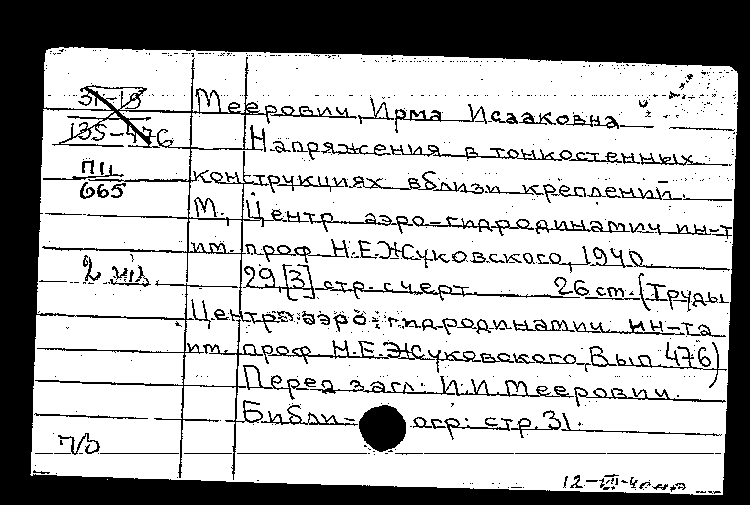 31-19
Меерович, Ирма Исааковна
135-476
Напряжения в тонкостенных
П11
665
конструкциях вблизи креплений.
М., Центр аэро-гидродинамич ин-т
им. проф Н.Е.Жуковского, 1940.
2 экз.
29,[3] стр. с черт. 26 ст. (Труды
Центр аэро-гидродинамич ин-та
им. проф Н.Е.Жуковского, Вып 476)
Перед загл: И.И.Меерович.
Библи- огр: стр. 31.
п/о
12-VII-40